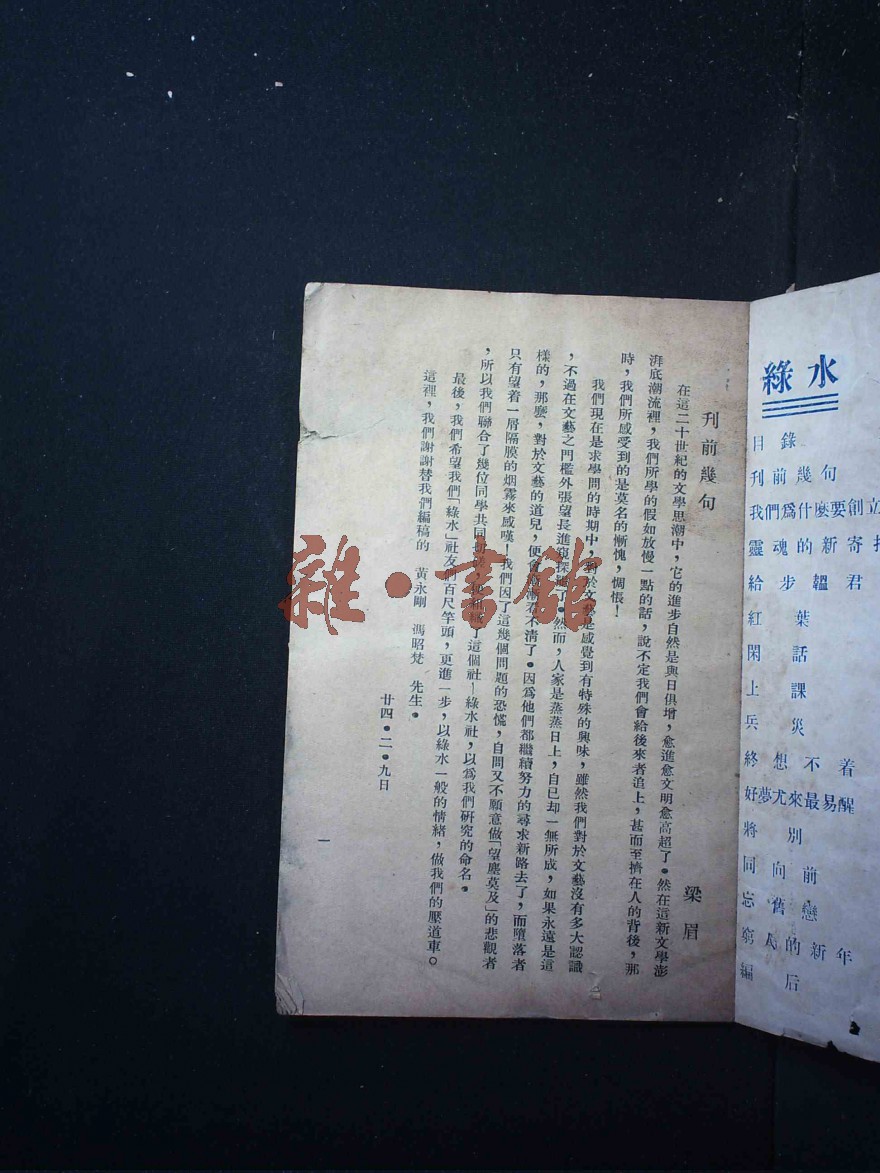 綠水
目錄
刊前幾句
我們爲什麼要創立
靈魂的新寄
給步韞君
紅葉
閑話
上課
兵災
終想不着
好夢尤來最易醒
將別
同向前
忘舊戀
窮人的新年
編后
刊前幾句
梁眉
在這二十世紀的文學思潮中，它的進步自然是與日俱增，愈進愈文明愈高超了。然在這新文學澎
湃底潮流裡，我們所學的假如放慢一點的話，說不定我們會給後來者追上，甚而至擠在人的背後，那
時，我們所感受到的是莫名的慚愧，惆悵！
我們現在是求學問的時期中，對於文藝是感覺到有特殊的興味，雖然我們對於文藝沒有多大認識
，不過在文藝之門檻外張望長進窺探罷了。然而，人家是蒸蒸日上，自已却一無所成，如果永遠是這
樣的，那麽，對於文藝的道兒，便會漸漸看不清了。因爲他們都繼續努力的尋求新路去了，而墮落者
只有望着一層隔膜的烟霧來感嘆！我們因了這幾個問題的恐慌，自問又不願意做「望塵莫及」的悲觀者
，所以我們聯合了幾位同學共同 了這個社—綠水社，以爲我們研究的命名。
最後，我們希望我們「綠水」社友們百尺竿頭，更進一步，以綠水一般的情緒，做我們的壓道車。
這裡，我們謝謝替我們編稿的 黃永剛 馮昭梵 先生。
廿四・二・九日
一
雜・書館